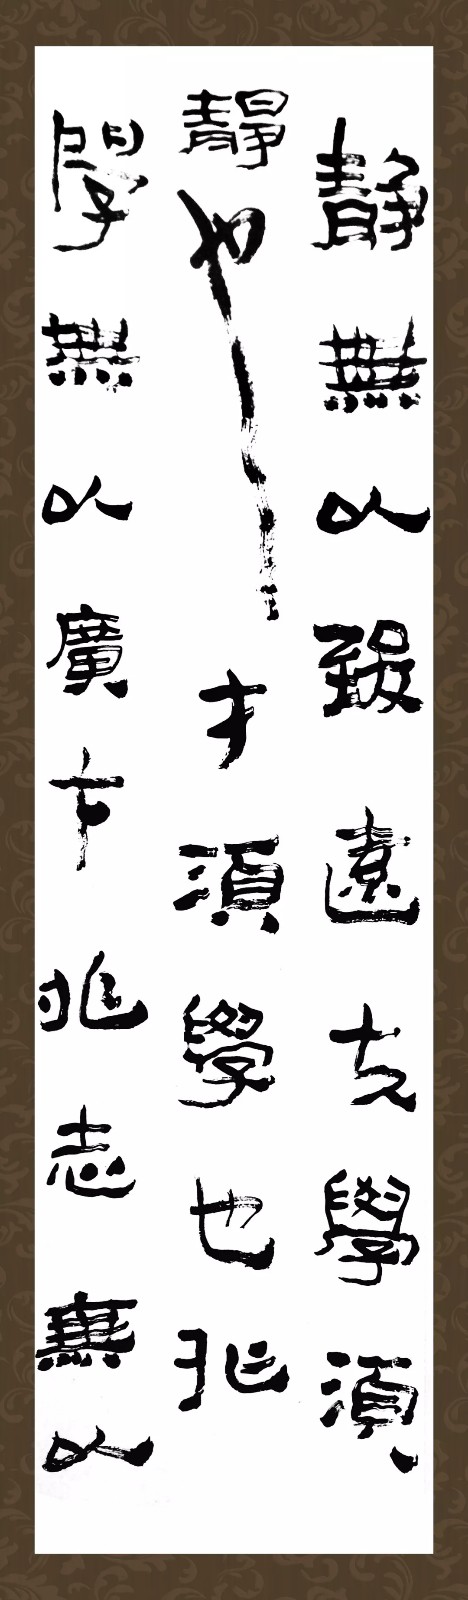 靜無以致遠夫學須
靜也才須學也非
學無以廣才非志無以